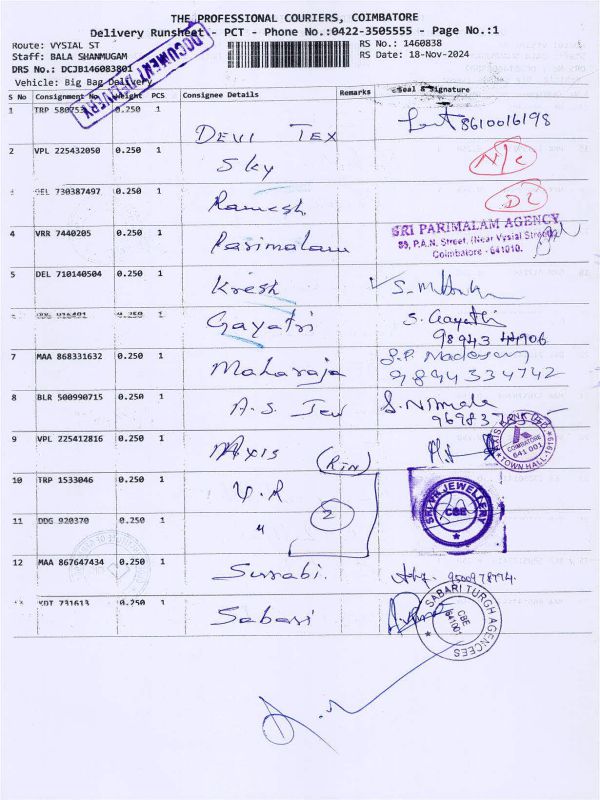 THE PROFESSIONAL COURIERS, COIMBATORE
Delivery Runsheet - PCT - Phone No.:0422-3505555 - Page No.:1
Route: VYSIAL ST
RS No.: 1460838
Staff: BALA SHANMUGAM
RS Date: 18-Nov-2024
DRS No.: DCJB146083801
Vehicle: Big Bag Delivery
DOCUMENT DELIVERY
S No Consignment No Weight PCS Consignee Details Remarks Seal & Signature
1 TRP 0.250 1
DEVI TEX
8610016198
2 VPL 225432050 0.250 1
Sky
N/c
DEL 730387497 0.250 1
Ramesh
D2
4 VRR 7440205 0.250 1
Parimalam
SRI PARIMALAM AGENCY
89, P.A.N. Street, (Near Vysial Street)
Coimbatore - 641010.
5 DEL 710140504 0.250 1
Kresh
0.250 1
Gayatri
S. Gayathri
98943 44906
7 MAA 868331632 0.250 1
Maharaja
9894334742
8 BLR 500990715 0.250 1
A.S. Jew
S. Nirmala
9 VPL 225412816 0.250 1
Axis
(RIN)
AXIS BANK LTD
COIMBATORE
641 001
TOWN HALL-1919
10 TRP 1533046 0.250 1
V.R
2
JEWELLERY
CBE
11 DDG 920370 0.250 1
"
12 MAA 867647434 0.250 1
Surabi.
13 KDT 731613 0.250 1
Sabari
SABARI TURGH AGENCEES
CBE
641001